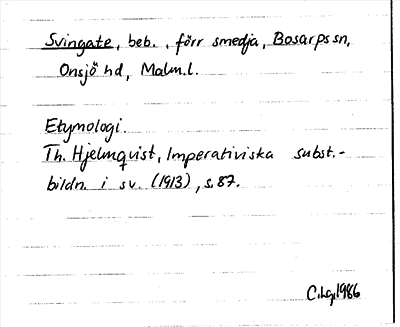 Svingate, beb., förr smedja, Bosarps sn,
Onsjö hd, Malm.l.
Etymologi.
Th. Hjelmqvist, Imperativiska subst.-
bildn. i sv. (1913), s. 87.
C.Lg. 1986